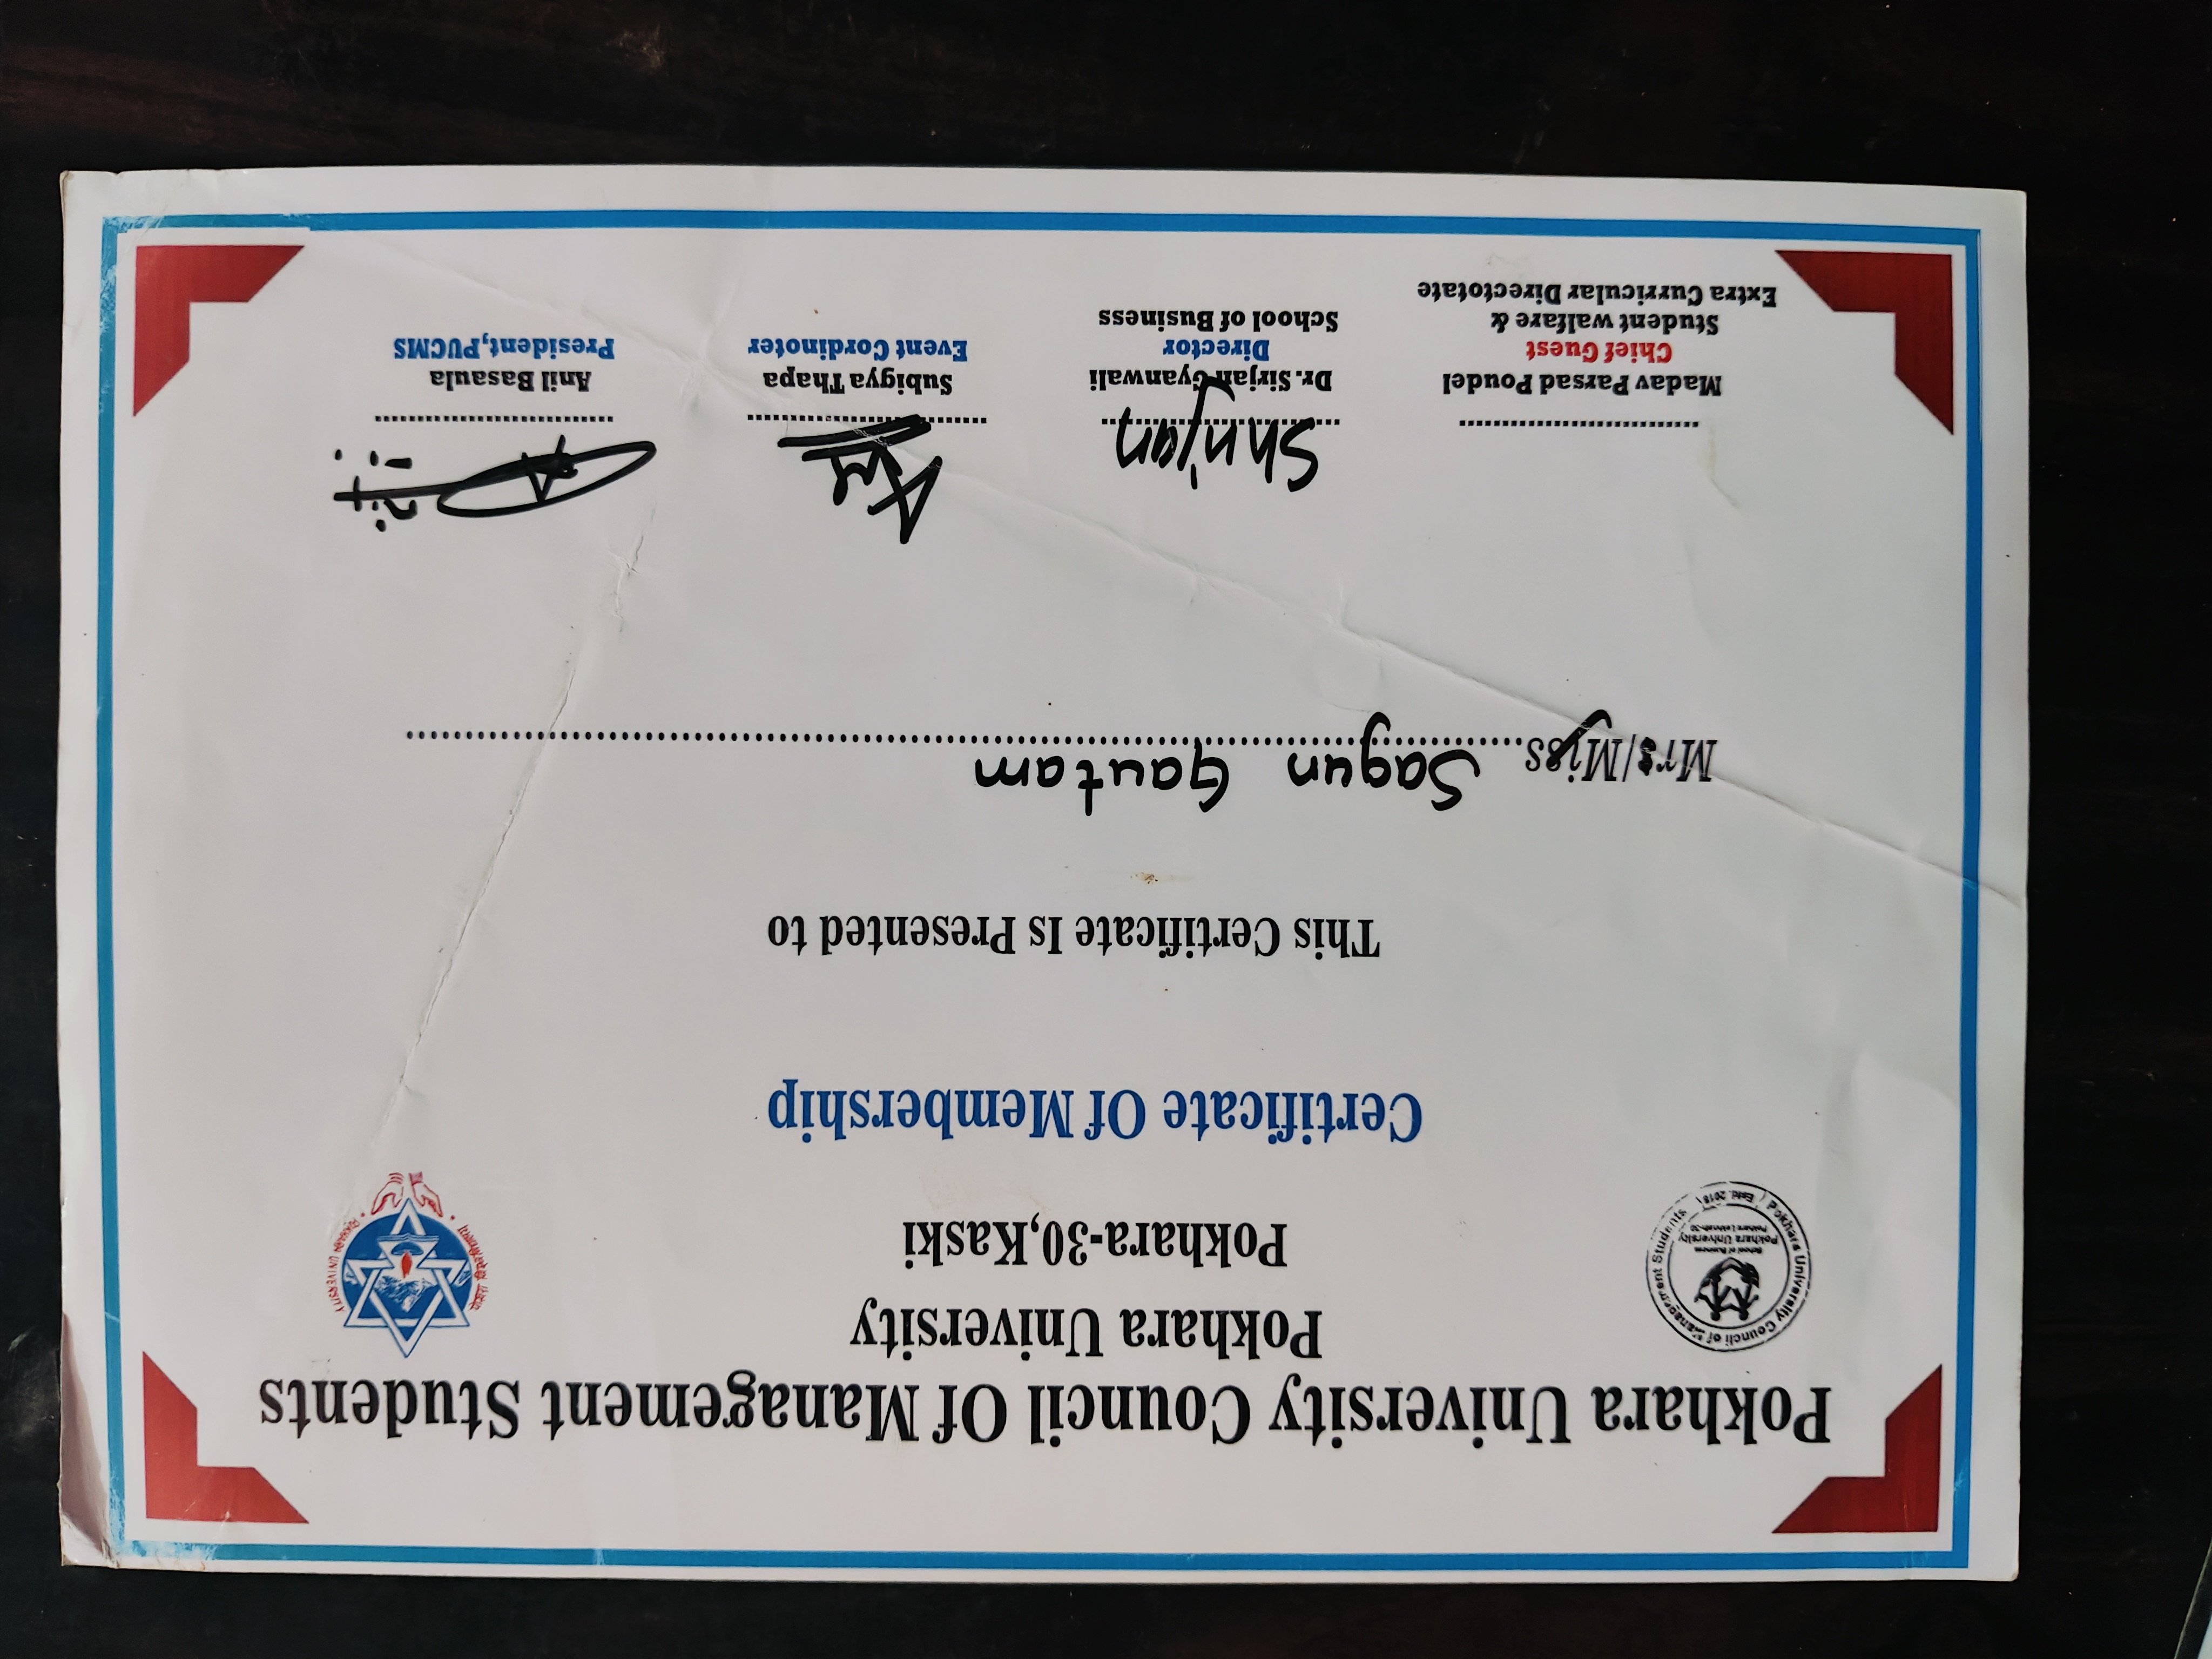 Pokhara University Council Of Management Students
Pokhara University
Pokhara-30,Kaski
Pokhara University Council of Management Students
School of Business
Pokhara University
Pokhara Lekhnath-30
Estd. 2018
पोखरा विश्वविद्यालय
POKHARA UNIVERSITY
Certificate Of Membership
This Certificate Is Presented to
Mrs/Miss Sagun Gautam
Shrijan
Madav Parsad Poudel
Chief Guest
Student walfare &
Extra Curricular Directotate
Dr. Sirjan Gyanwali
Director
School of Business
Subigya Thapa
Event Cordinoter
Anil Basaula
President,PUCMS